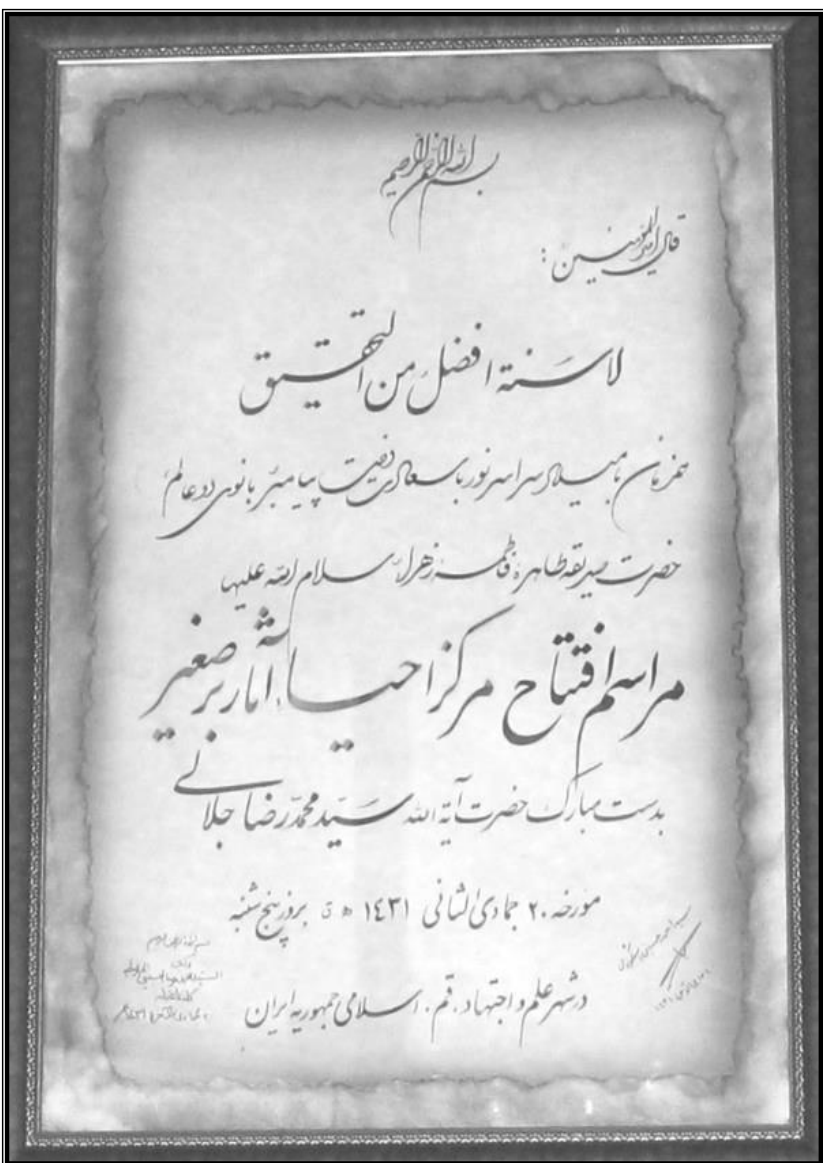 بسم الله الرحمن الرحیم
قال امیرالمؤمنین :
لا سنة افضل من التحقیق
همزمان با میلاد سراسر نور با سعادت پیامبر بانوی دو عالم
حضرت صدیقه طاهره فاطمه زهرا سلام الله علیها
مراسم افتتاح مرکز احیاء آثار برصغیر
بدست مبارک حضرت آیة الله سید محمد رضا جلالی
مورخه ۲۰ جمادی الثانی ۱٤۳۱ ه ق بروز پنج شنبه
در شهر علم و اجتهاد، قم، اسلامی جمهوریه ایران